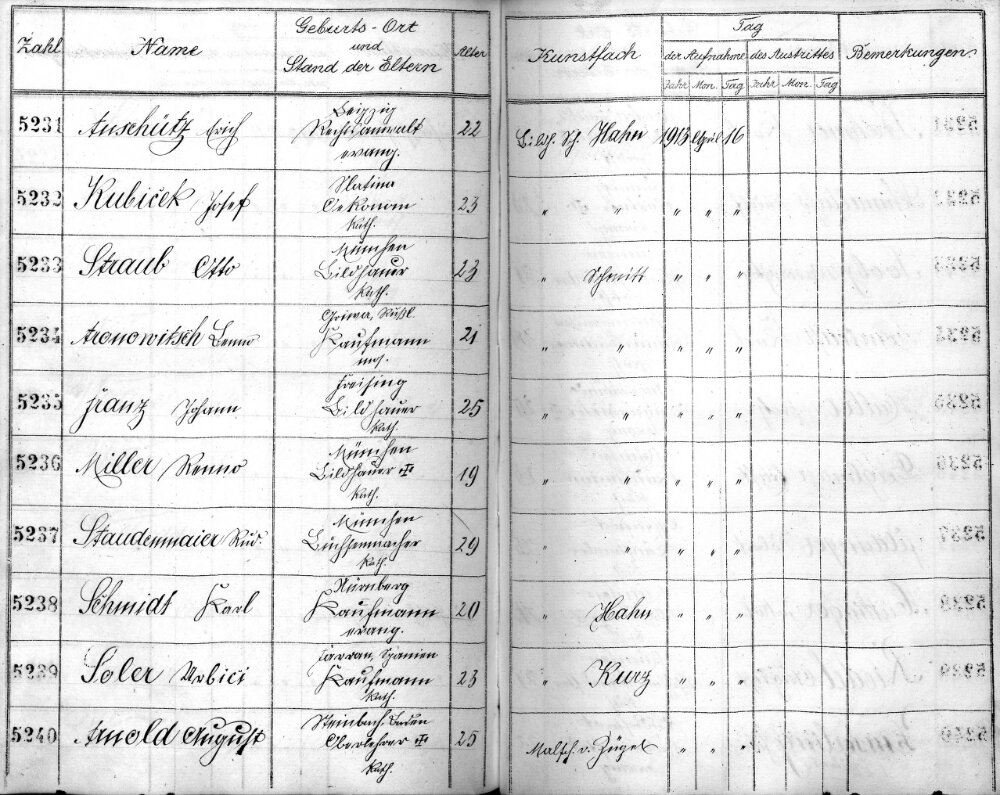 Zahl Name Geburts-Ort und Stand der Eltern Alter Kunstfach Tag der Aufnahme des Austrittes Bemerkungen
Jahr Mon. Tag Jahr Mon. Tag
Leipzig
5231 Anschütz Erich Rechtsanwalt 22 Bildh. Sch. Hahn 1913 April 16
evang.
Slatina
5232 Kubiček Josef Oekonom 23 " " " " "
kath.
München
5233 Straub Otto Bildhauer 23 " Schmitt " " "
kath.
Griwa, Rußl.
5234 Aronowitsch Benno Kaufmann 21 " " " " "
mos.
Freising
5235 Franz Johann Bildhauer 25 " " " " "
kath.
München
5236 Miller Renno Bildhauer 19 " " " " "
kath.
München
5237 Staudenmaier Rud. Büchsenmacher 29 " " " " "
kath.
Nürnberg
5238 Schmidt Karl Kaufmann 20 " Hahn " " "
evang.
Spanien
5239 Soler Urbici Kaufmann 23 " Kurz " " "
kath.
Steinbach, Baden
5240 Arnold August Oberlehrer 25 Malsch. v. Zügel " " "
kath.